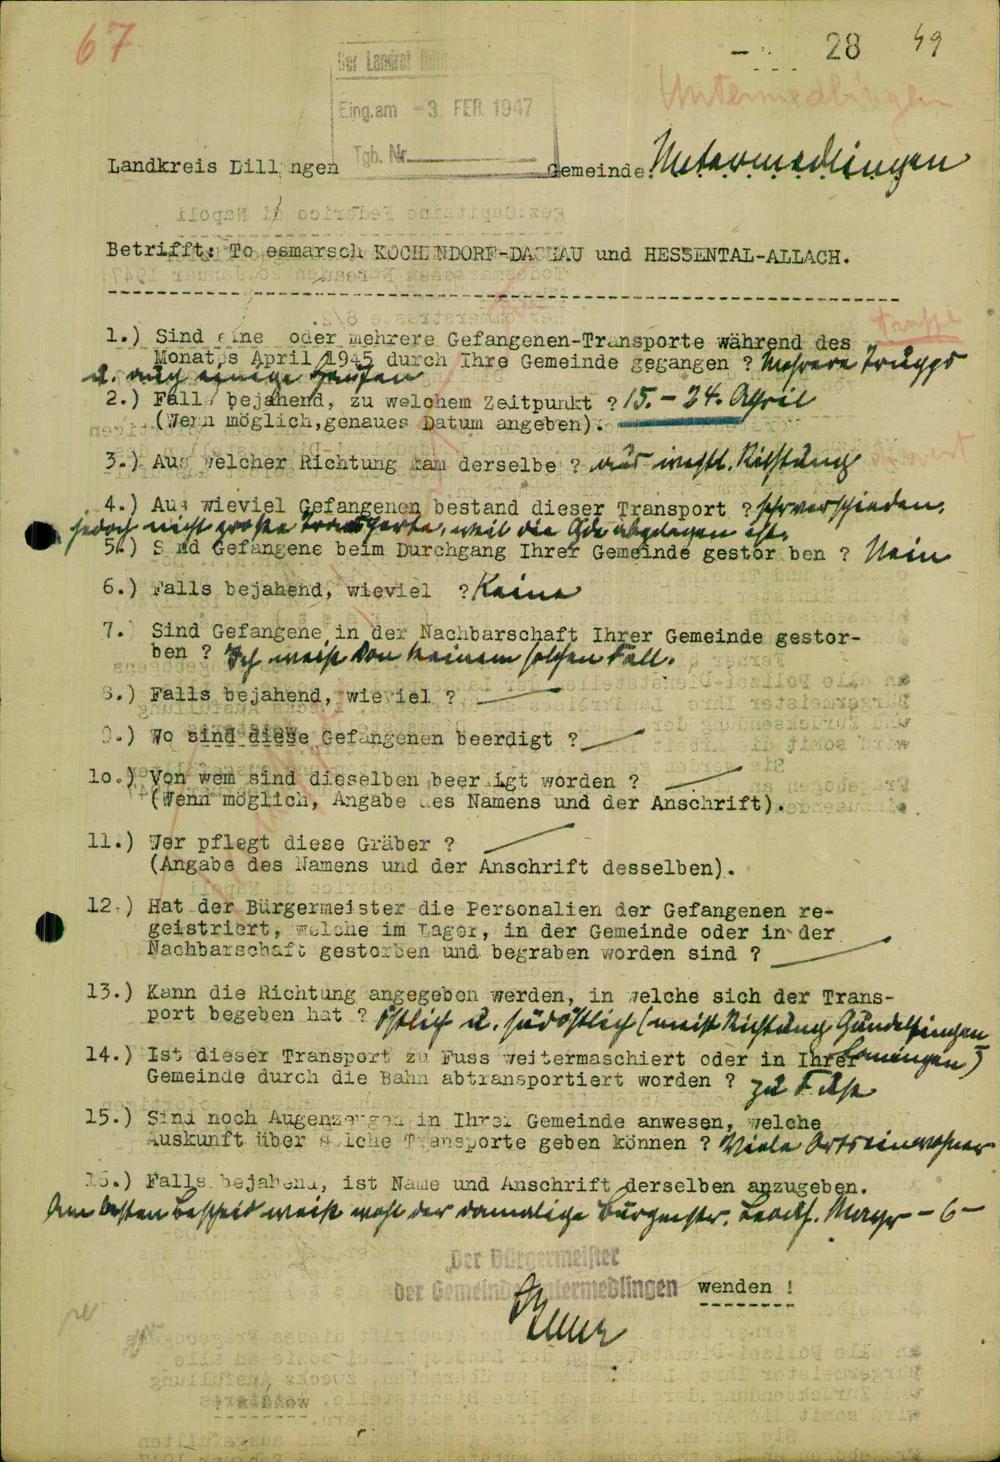 67
28 49
Untermedlingen
Der Landrat
Eing.am -3. FEB. 1947
Tgb. Nr.
Landkreis Dillingen Gemeinde Untermedlingen
Betrifft: Todesmarsch KOCHENDORF-DACHAU und HESSENTAL-ALLACH.
1.) Sind eine oder mehrere Gefangenen-Transporte während des
Monats April 1945 durch Ihre Gemeinde gegangen ? Mehrere Trupps
u. auch einige Haufen
2.) Falls bejahend, zu welchem Zeitpunkt ? 15. - 24. April
(Wenn möglich,genaues Datum angeben).
3.) Aus welcher Richtung kam derselbe ? aus westl. Richtung
4.) Aus wieviel Gefangenen bestand dieser Transport ? sehr verschieden,
jedoch nicht große Transporte, weil die Gde abgelegen ist.
5.) Sind Gefangene beim Durchgang Ihrer Gemeinde gestor ben ? Nein
6.) Falls bejahend, wieviel ? Keine
7.) Sind Gefangene in der Nachbarschaft Ihrer Gemeinde gestor-
ben ? Ich weiß von keinem solchen Fall.
8.) Falls bejahend, wieviel ?
9.) Wo sind diese Gefangenen beerdigt ?
10.) Von wem sind dieselben beerdigt worden ?
(Wenn möglich, Angabe des Namens und der Anschrift).
11.) Wer pflegt diese Gräber ?
(Angabe des Namens und der Anschrift desselben).
12.) Hat der Bürgermeister die Personalien der Gefangenen re-
geistriert, welche im Lager, in der Gemeinde oder in der
Nachbarschaft gestorben und begraben worden sind ?
13.) Kann die Richtung angegeben werden, in welche sich der Trans-
port begeben hat ? östlich u. südöstlich (meist Richtung Gundelfingen
14.) Ist dieser Transport zu Fuss weitermaschiert oder in Ihrer
Gemeinde durch die Bahn abtransportiert worden ? zu Fuß
15.) Sind noch Augenzeugen in Ihrer Gemeinde anwesen, welche
Auskunft über solche Transporte geben können ? Viele Ortseinwohner
16.) Falls bejahend, ist Name und Anschrift derselben anzugeben.
Am besten Bescheid weiß wohl der damalige Bürgermstr. Mayr - 6 -
Der Bürgermeister
der Gemeinde Untermedlingen wenden !